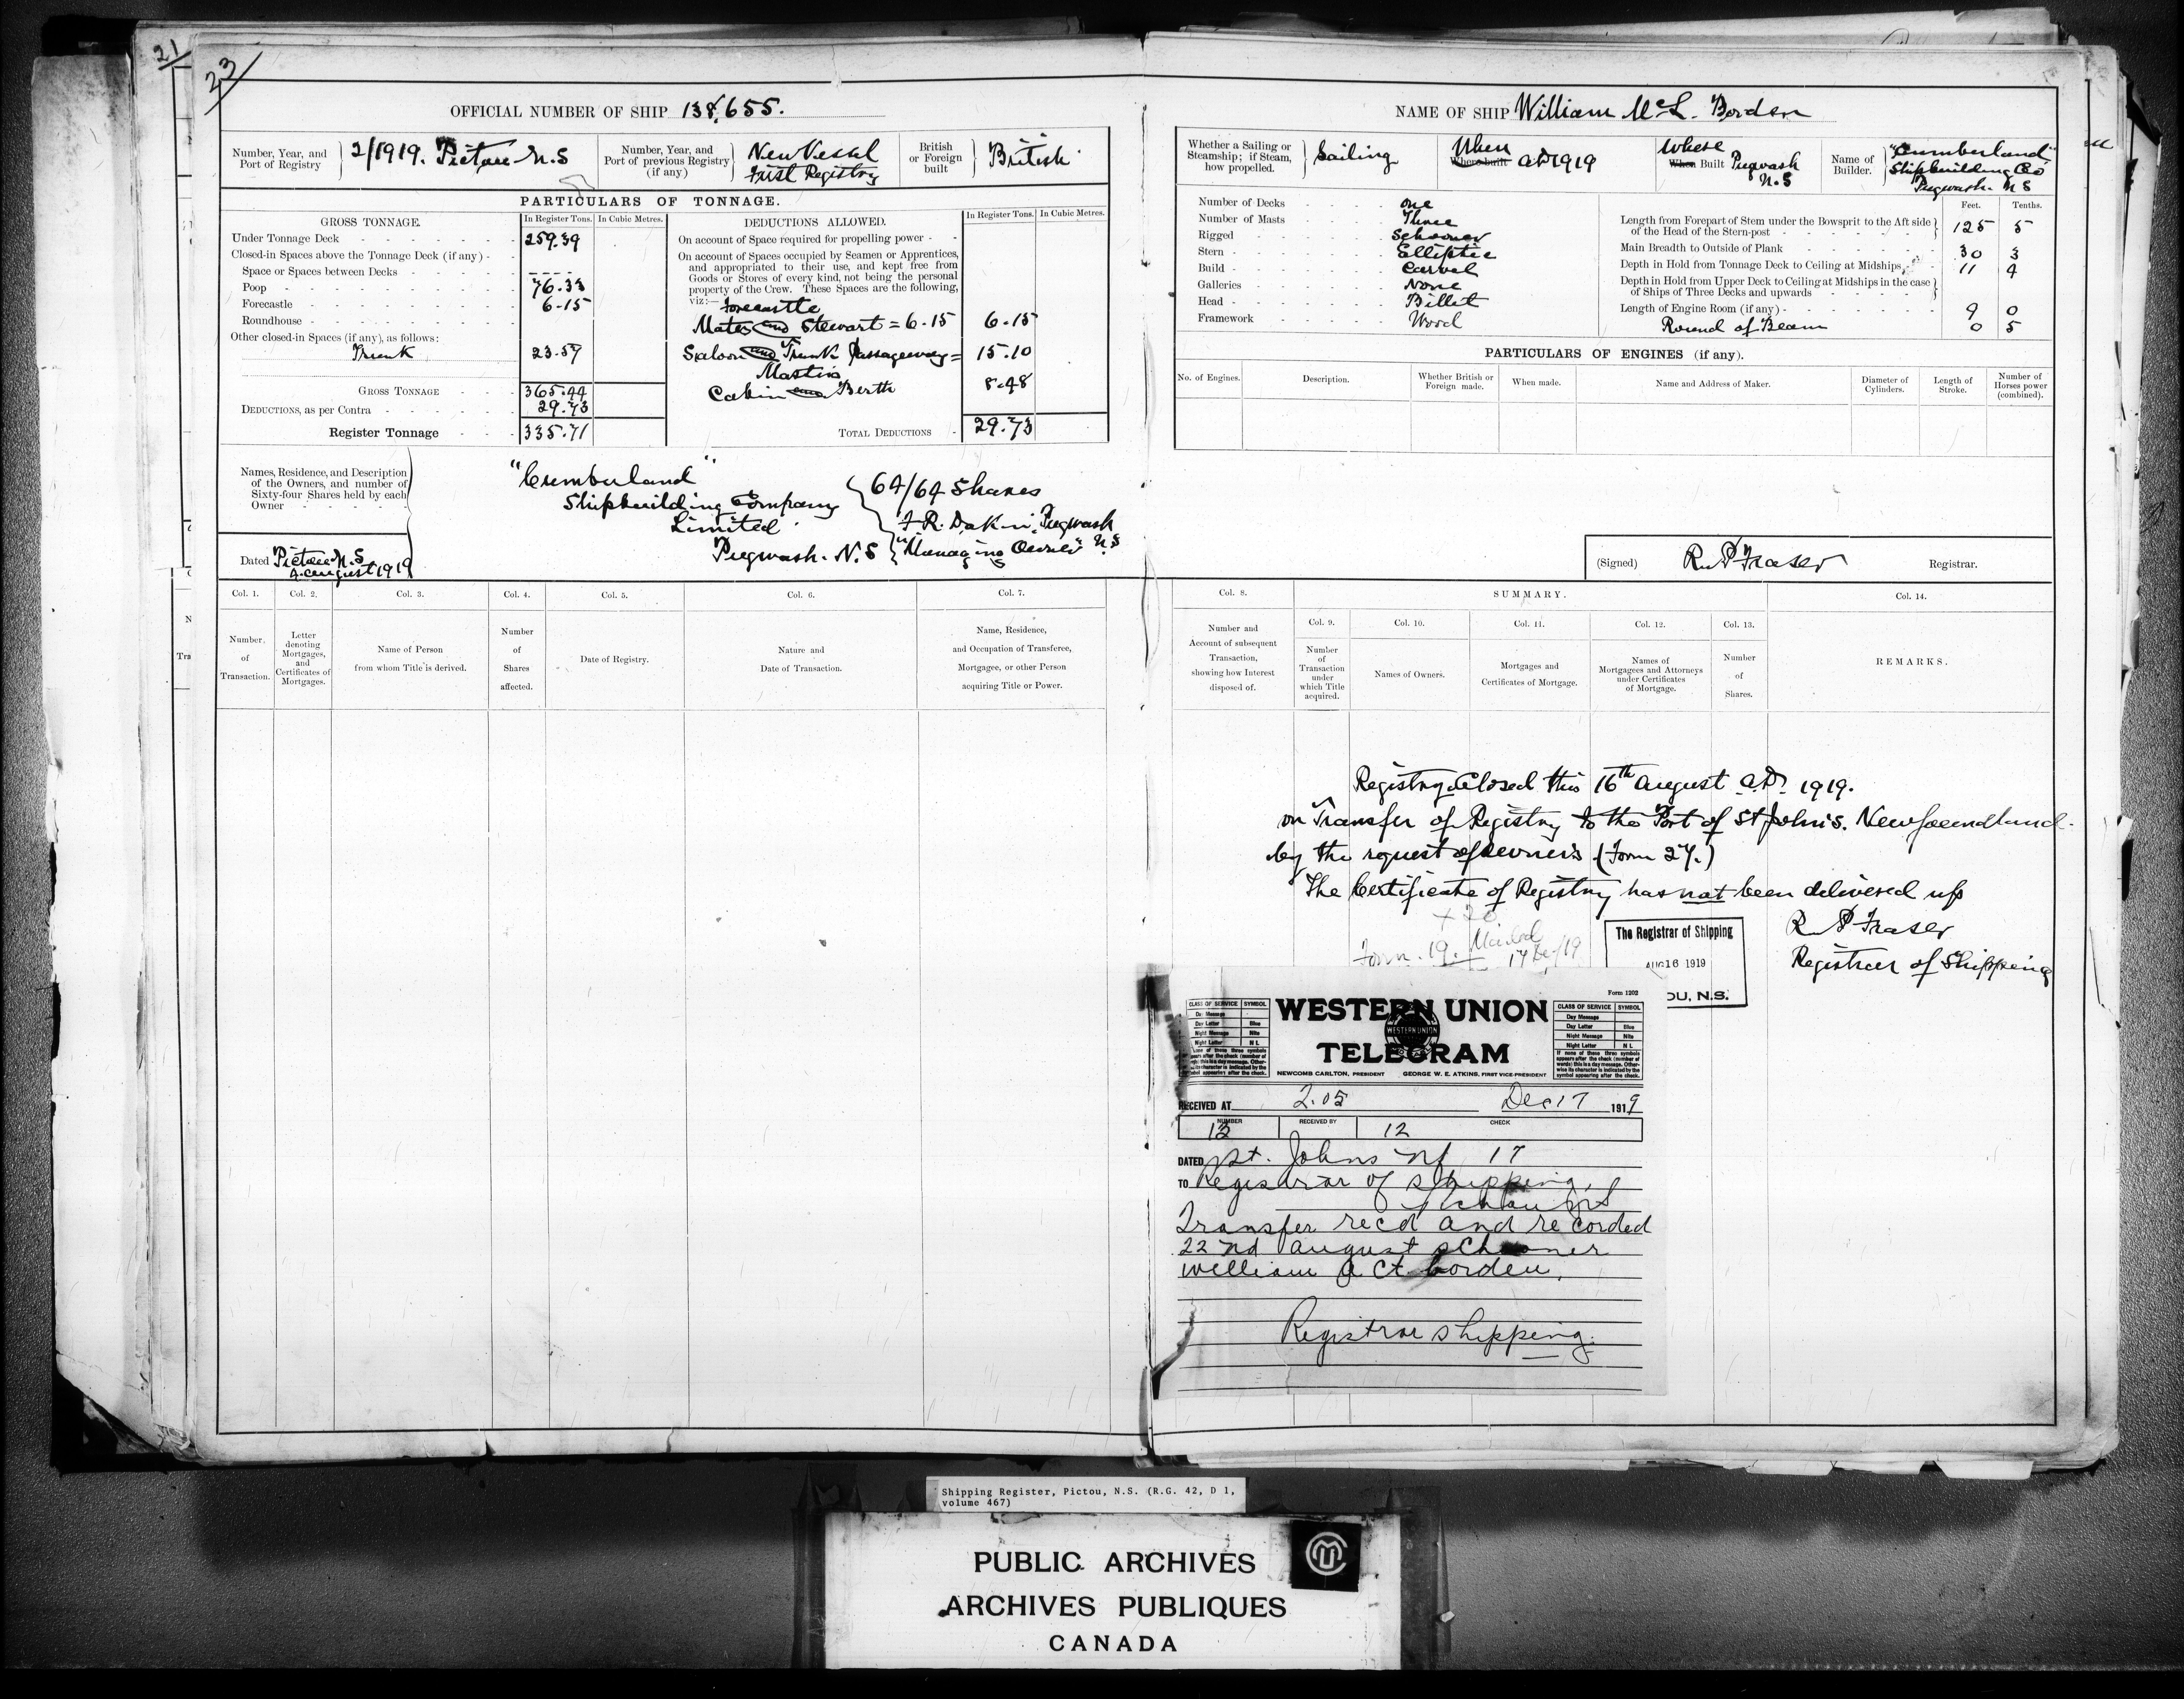 21
23
OFFICIAL NUMBER OF SHIP 138,655.
Number, Year, and Port of Registry 2/1919. Pictou N.S
Number, Year, and Port of previous Registry (if any) New Vessel First Registry
British or Foreign built British
PARTICULARS OF TONNAGE.
GROSS TONNAGE. In Register Tons. In Cubic Metres.
Under Tonnage Deck 259.39
Closed-in Spaces above the Tonnage Deck (if any)
Space or Spaces between Decks
Poop 76.33
Forecastle 6.15
Roundhouse
Other closed-in Spaces (if any), as follows:
Trunk 23.57
GROSS TONNAGE 365.44
DEDUCTIONS, as per Contra 29.73
Register Tonnage 335.71
DEDUCTIONS ALLOWED. In Register Tons. In Cubic Metres.
On account of Space required for propelling power
On account of Spaces occupied by Seamen or Apprentices,
and appropriated to their use, and kept free from
Goods or Stores of every kind, not being the personal
property of the Crew. These Spaces are the following,
viz:— Forecastle
Mates and Stewart = 6.15 6.15
Saloon and Trunk Passageway = 15.10
Masters
Cabin and Berth 8.48
TOTAL DEDUCTIONS 29.73
Names, Residence, and Description
of the Owners, and number of
Sixty-four Shares held by each
Owner
"Cumberland"
Shipbuilding Company
Limited
Pugwash. N.S
64/64 Shares
F.R. Dakin, Pugwash
"Managing Owner" N.S
Dated Pictou N.S
4. August 1919
Col. 1. Col. 2. Col. 3. Col. 4. Col. 5. Col. 6. Col. 7.
Number of Transaction.
Letter denoting Mortgages, and Certificates of Mortgages.
Name of Person from whom Title is derived.
Number of Shares affected.
Date of Registry.
Nature and Date of Transaction.
Name, Residence, and Occupation of Transferee, Mortgagee, or other Person acquiring Title or Power.
NAME OF SHIP William McL. Borden
Whether a Sailing or Steamship; if Steam, how propelled. Sailing
When Where built AD 1919
Where When Built Pugwash N.S
Name of Builder. "Cumberland" Shipbuilding Co Pugwash. N S
Number of Decks one
Number of Masts Three
Rigged Schooner
Stern Elliptic
Build Carvel
Galleries None
Head Billet
Framework Wood
Feet. Tenths.
Length from Forepart of Stem under the Bowsprit to the Aft side of the Head of the Stern-post 125 5
Main Breadth to Outside of Plank 30 3
Depth in Hold from Tonnage Deck to Ceiling at Midships, 11 4
Depth in Hold from Upper Deck to Ceiling at Midships in the case of Ships of Three Decks and upwards
Length of Engine Room (if any) 9 0
Round of Beam 0 5
PARTICULARS OF ENGINES (if any).
No. of Engines. Description. Whether British or Foreign made. When made. Name and Address of Maker. Diameter of Cylinders. Length of Stroke. Number of Horses power (combined).
(Signed) R.P. Fraser Registrar.
Col. 8. SUMMARY. Col. 14.
Number and Account of subsequent Transaction, showing how Interest disposed of.
Col. 9. Col. 10. Col. 11. Col. 12. Col. 13.
Number of Transaction under which Title acquired.
Names of Owners.
Mortgages and Certificates of Mortgage.
Names of Mortgagees and Attorneys under Certificates of Mortgage.
Number of Shares.
REMARKS.
Registry Closed this 16th August A.D. 1919.
on Transfer of Registry to the Port of St John's. Newfoundland.
by the request of owners (Form 27.)
The Certificate of Registry has not been delivered up
R P Fraser
Registrar of Shipping
+ 20
Form. 19. Mailed
17 Dec/19
The Registrar of Shipping
AUG 16 1919
OU, N.S.
Form 1202
WESTERN UNION
TELEGRAM
WESTERN UNION
CLASS OF SERVICE SYMBOL
Day Message
Day Letter Blue
Night Message Nite
Night Letter N L
If none of these three symbols appears after the check (number of words) this is a day message. Otherwise its character is indicated by the symbol appearing after the check.
NEWCOMB CARLTON, PRESIDENT GEORGE W. E. ATKINS, FIRST VICE-PRESIDENT
RECEIVED AT 2.05 Dec 17 1919
NUMBER 12 RECEIVED BY 12 CHECK
DATED St. Johns Nf 17
TO Registrar of Shipping,
Pictou NS
Transfer recd and recorded
22nd august schooner
william a ct borden.
Registrar shipping.
Shipping Register, Pictou, N.S. (R.G. 42, D 1,
volume 467)
PUBLIC ARCHIVES
ARCHIVES PUBLIQUES
CANADA